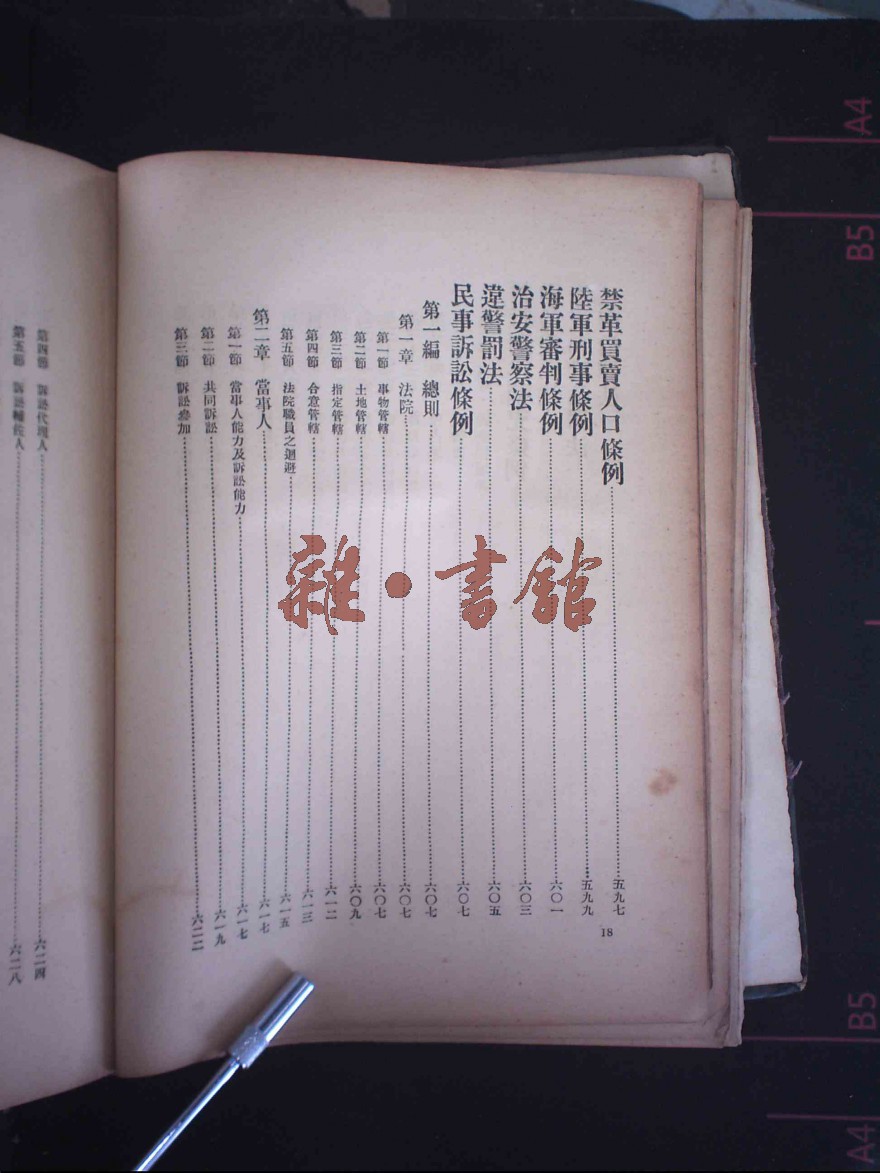 禁革買賣人口條例……五九七
陸軍刑事條例……五九九
海軍審判條例……六〇一
治安警察法……六〇三
違警罰法……六〇五
民事訴訟條例……六〇七
第一編 總則……六〇七
第一章 法院……六〇七
第一節 事物管轄……六〇七
第二節 土地管轄……六〇九
第三節 指定管轄……六一二
第四節 合意管轄……六一三
第五節 法院職員之迴避……六一五
第二章 當事人……六一七
第一節 當事人能力及訴訟能力……六一七
第二節 共同訴訟……六一九
第三節 訴訟參加……六二二
18
第四節 訴訟代理人……六二四
第五節 訴訟輔佐人……六二八
雜·書館
A4
B5
B5
A4